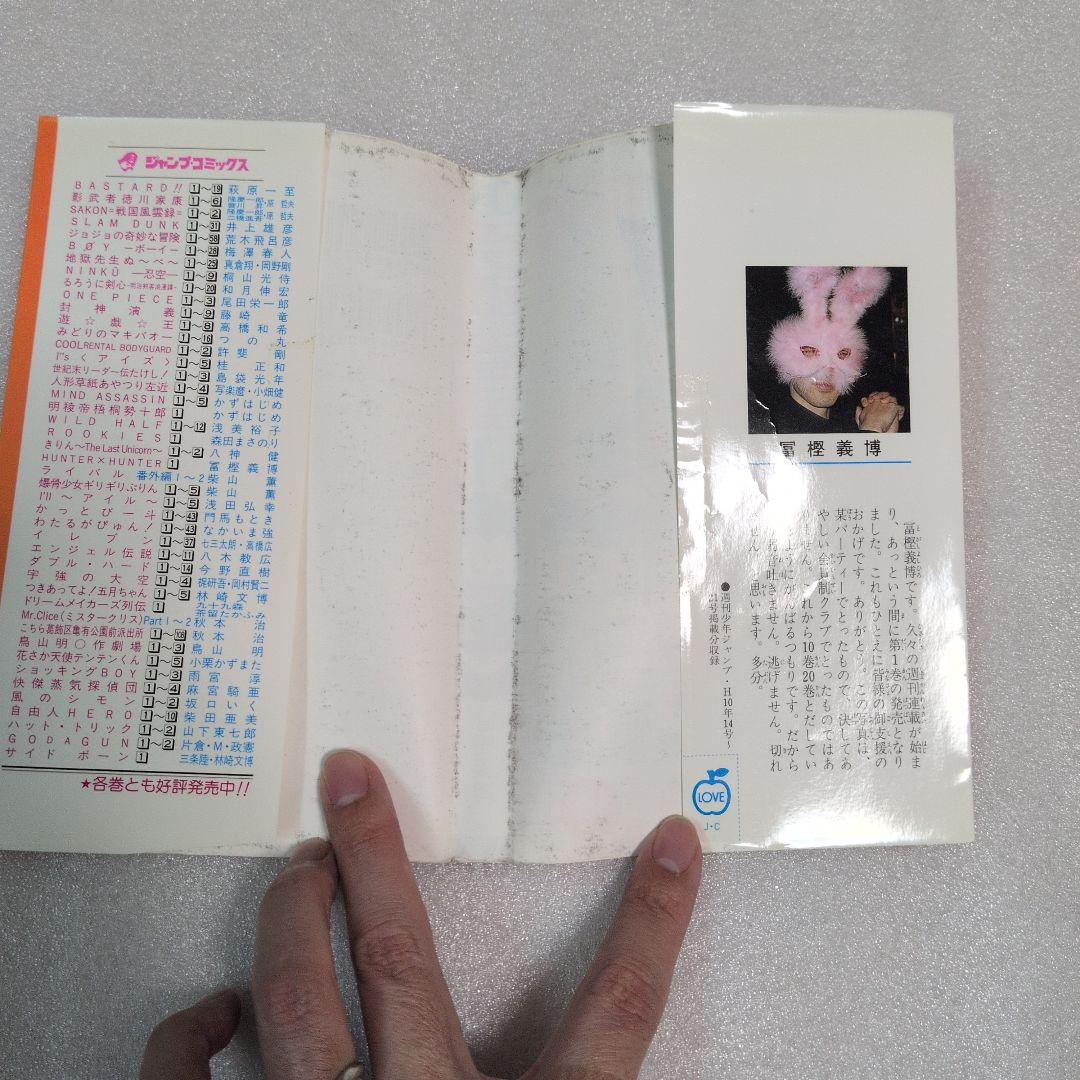 ジャンプ・コミックス
BASTARD!! 1〜19 萩原一至
影武者徳川家康 1〜6 隆慶一郎・原哲夫
SAKON=戦国風雲録= 1〜2 隆慶一郎・原哲夫
SLAM DUNK 1〜31 井上雄彦
ジョジョの奇妙な冒険 1〜58 荒木飛呂彦
BØY —ボーイ— 1〜28 梅澤春人
地獄先生ぬ〜べ〜 1〜25 真倉翔・岡野剛
NINKŪ —忍空— 1〜9 桐山光侍
るろうに剣心-明治剣客浪漫譚- 1〜20 和月伸宏
ONE PIECE 1〜3 尾田栄一郎
封神演義 1〜9 藤崎竜
遊☆戯☆王 1〜8 高橋和希
みどりのマキバオー 1〜16 つの丸
COOL RENTAL BODYGUARD 1〜2 許斐剛
I"s〈アイズ〉 1〜5 桂正和
世紀末リーダー伝たけし! 1〜3 島袋光年
人形草紙あやつり左近 1〜4 写楽麿・小畑健
MIND ASSASSIN 1〜5 かずはじめ
明稜帝梧桐勢十郎 1 かずはじめ
WILD HALF 1〜12 浅美裕子
ROOKIES 1 森田まさのり
きりん〜The Last Unicorn〜 1〜2 八神健
HUNTER×HUNTER 1 冨樫義博
ライバル 番外編1〜2 柴山薫
爆骨少女ギリギリぷりん 1〜5 柴山薫
I'll〜アイル〜 1〜5 浅田弘幸
かっとび一斗 1〜43 門馬もとき
わたるがぴゅん! 1〜43 なかいま強
イレブン 1〜37 七三太朗・高橋広
エンジェル伝説 1〜11 八木教広
ダブル・ハード 1〜14 今野直樹
宇強の大空 1〜4 梶研吾・岡村賢二
つきあってよ!五月ちゃん 1〜5 林崎文博
ドリームメイカーズ列伝 1 九十九森・茶留たかふみ
Mr.Clice(ミスタークリス) Part1〜2 秋本治
こちら葛飾区亀有公園前派出所 1〜108 秋本治
鳥山明〇作劇場 1〜3 鳥山明
花さか天使テンテンくん 1〜5 小栗かずまた
ショッキングBOY 1〜3 雨宮淳
快傑蒸気探偵団 1〜4 麻宮騎亜
風のシモン 1〜2 坂口いく
自由人HERO 1〜10 柴田亜美
ハット・トリック 1〜2 山下東七郎
GODAGUN 1〜2 片倉・M・政憲
サイドボーン 1 三条陸・林崎文博
★各巻とも好評発売中!!
冨樫義博
冨樫義博です。久々の週刊連載が始ま
り、あっという間に第1巻の発売となり
ました。これもひとえに皆様の御支援の
おかげです。ありがとう。この写真は、
某パーティーでとったもので、決してあ
やしい会員制クラブでとったものではあ
りません。これから10巻20巻とだしてい
ようにがんばるつもりです。だから
音吐きません。逃げません。切れ
せん
思います。多分。
●週刊少年ジャンプ・H10年14号〜
21号掲載分収録
LOVE
J・C